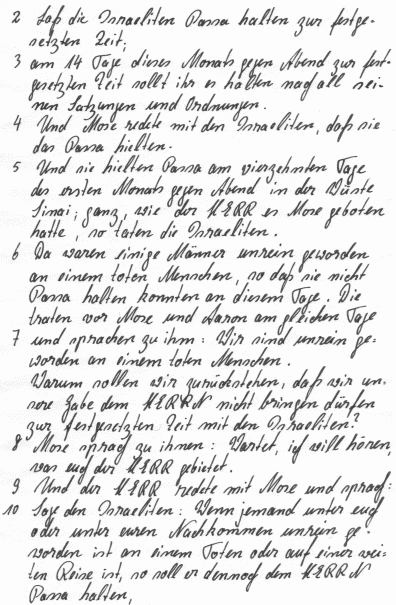 2 Laß die Israeliten Passa halten zur festge-
setzten Zeit;
3 am 14 Tage dieses Monats gegen Abend zur fest-
gesetzten Zeit sollt ihr es halten nach all sei-
nen Satzungen und Ordnungen.
4 Und Mose redete mit den Israeliten, daß sie
das Passa hielten.
5 Und sie hielten Passa am vierzehnten Tage
des ersten Monats gegen Abend in der Wüste
Sinai; ganz, wie der HERR es Mose geboten
hatte, so taten die Israeliten.
6 Da waren einige Männer unrein geworden
an einem toten Menschen, so daß sie nicht
Passa halten konnten an diesem Tage. Die
traten vor Mose und Aaron am gleichen Tage
7 und sprachen zu ihm: Wir sind unrein ge-
worden an einem toten Menschen.
Warum sollen wir zurückstehen, daß wir un-
sere Gabe dem HERRN nicht bringen dürfen
zur festgesetzten Zeit mit den Israeliten?
8 Mose sprach zu ihnen: Wartet, ich will hören,
was euch der HERR gebietet.
9 Und der HERR redete mit Mose und sprach:
10 Sage den Israeliten: Wenn jemand unter euch
oder unter euren Nachkommen unrein ge-
worden ist an einem Toten oder auf einer wei-
ten Reise ist, so soll er dennoch dem HERRN
Passa halten,